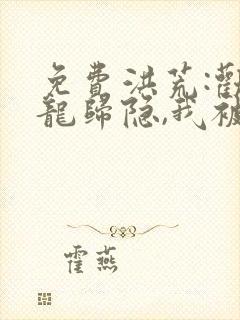 免費洪荒:
龍歸隐,我被
霍燕